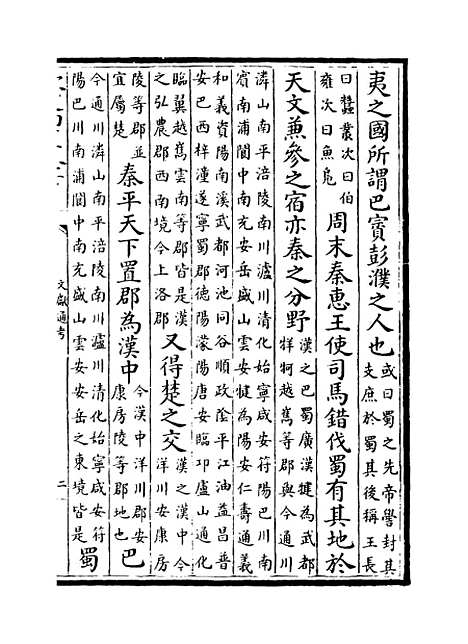 夷之國所謂巴賨彭濮之人也或曰蜀之先帝嚳封其支庶於蜀其後稱王長
曰蠶叢次曰伯雍次曰魚鳧周末秦惠王使司馬錯伐蜀有其地於
天文兼參之宿亦秦之分野漢之巴蜀廣漢犍為武都牂牁越嶲等郡與今通川
潾山南平涪陵南川瀘川清化始寧咸安符陽巴川南賔南浦閬中南充盛山雲安犍為陽安仁壽通義
和義資陽南溪武都河池同谷順政陰平江油益昌普安巴西梓潼遂寧蜀郡德陽濛陽唐安臨邛廬山通化
臨翼越嶲雲南等郡皆是漢之弘農郡西南境今上洛郡又得楚之交漢之漢中今洋川安康房
陵等郡並宜屬楚秦平天下置郡為漢中今漢中洋川郡安康房陵等郡地也巴
今通川潾山南平涪陵南川瀘川清化始寧咸安符陽巴川南浦閬中南充盛山雲安安岳之東境皆是蜀
文獻通考
二